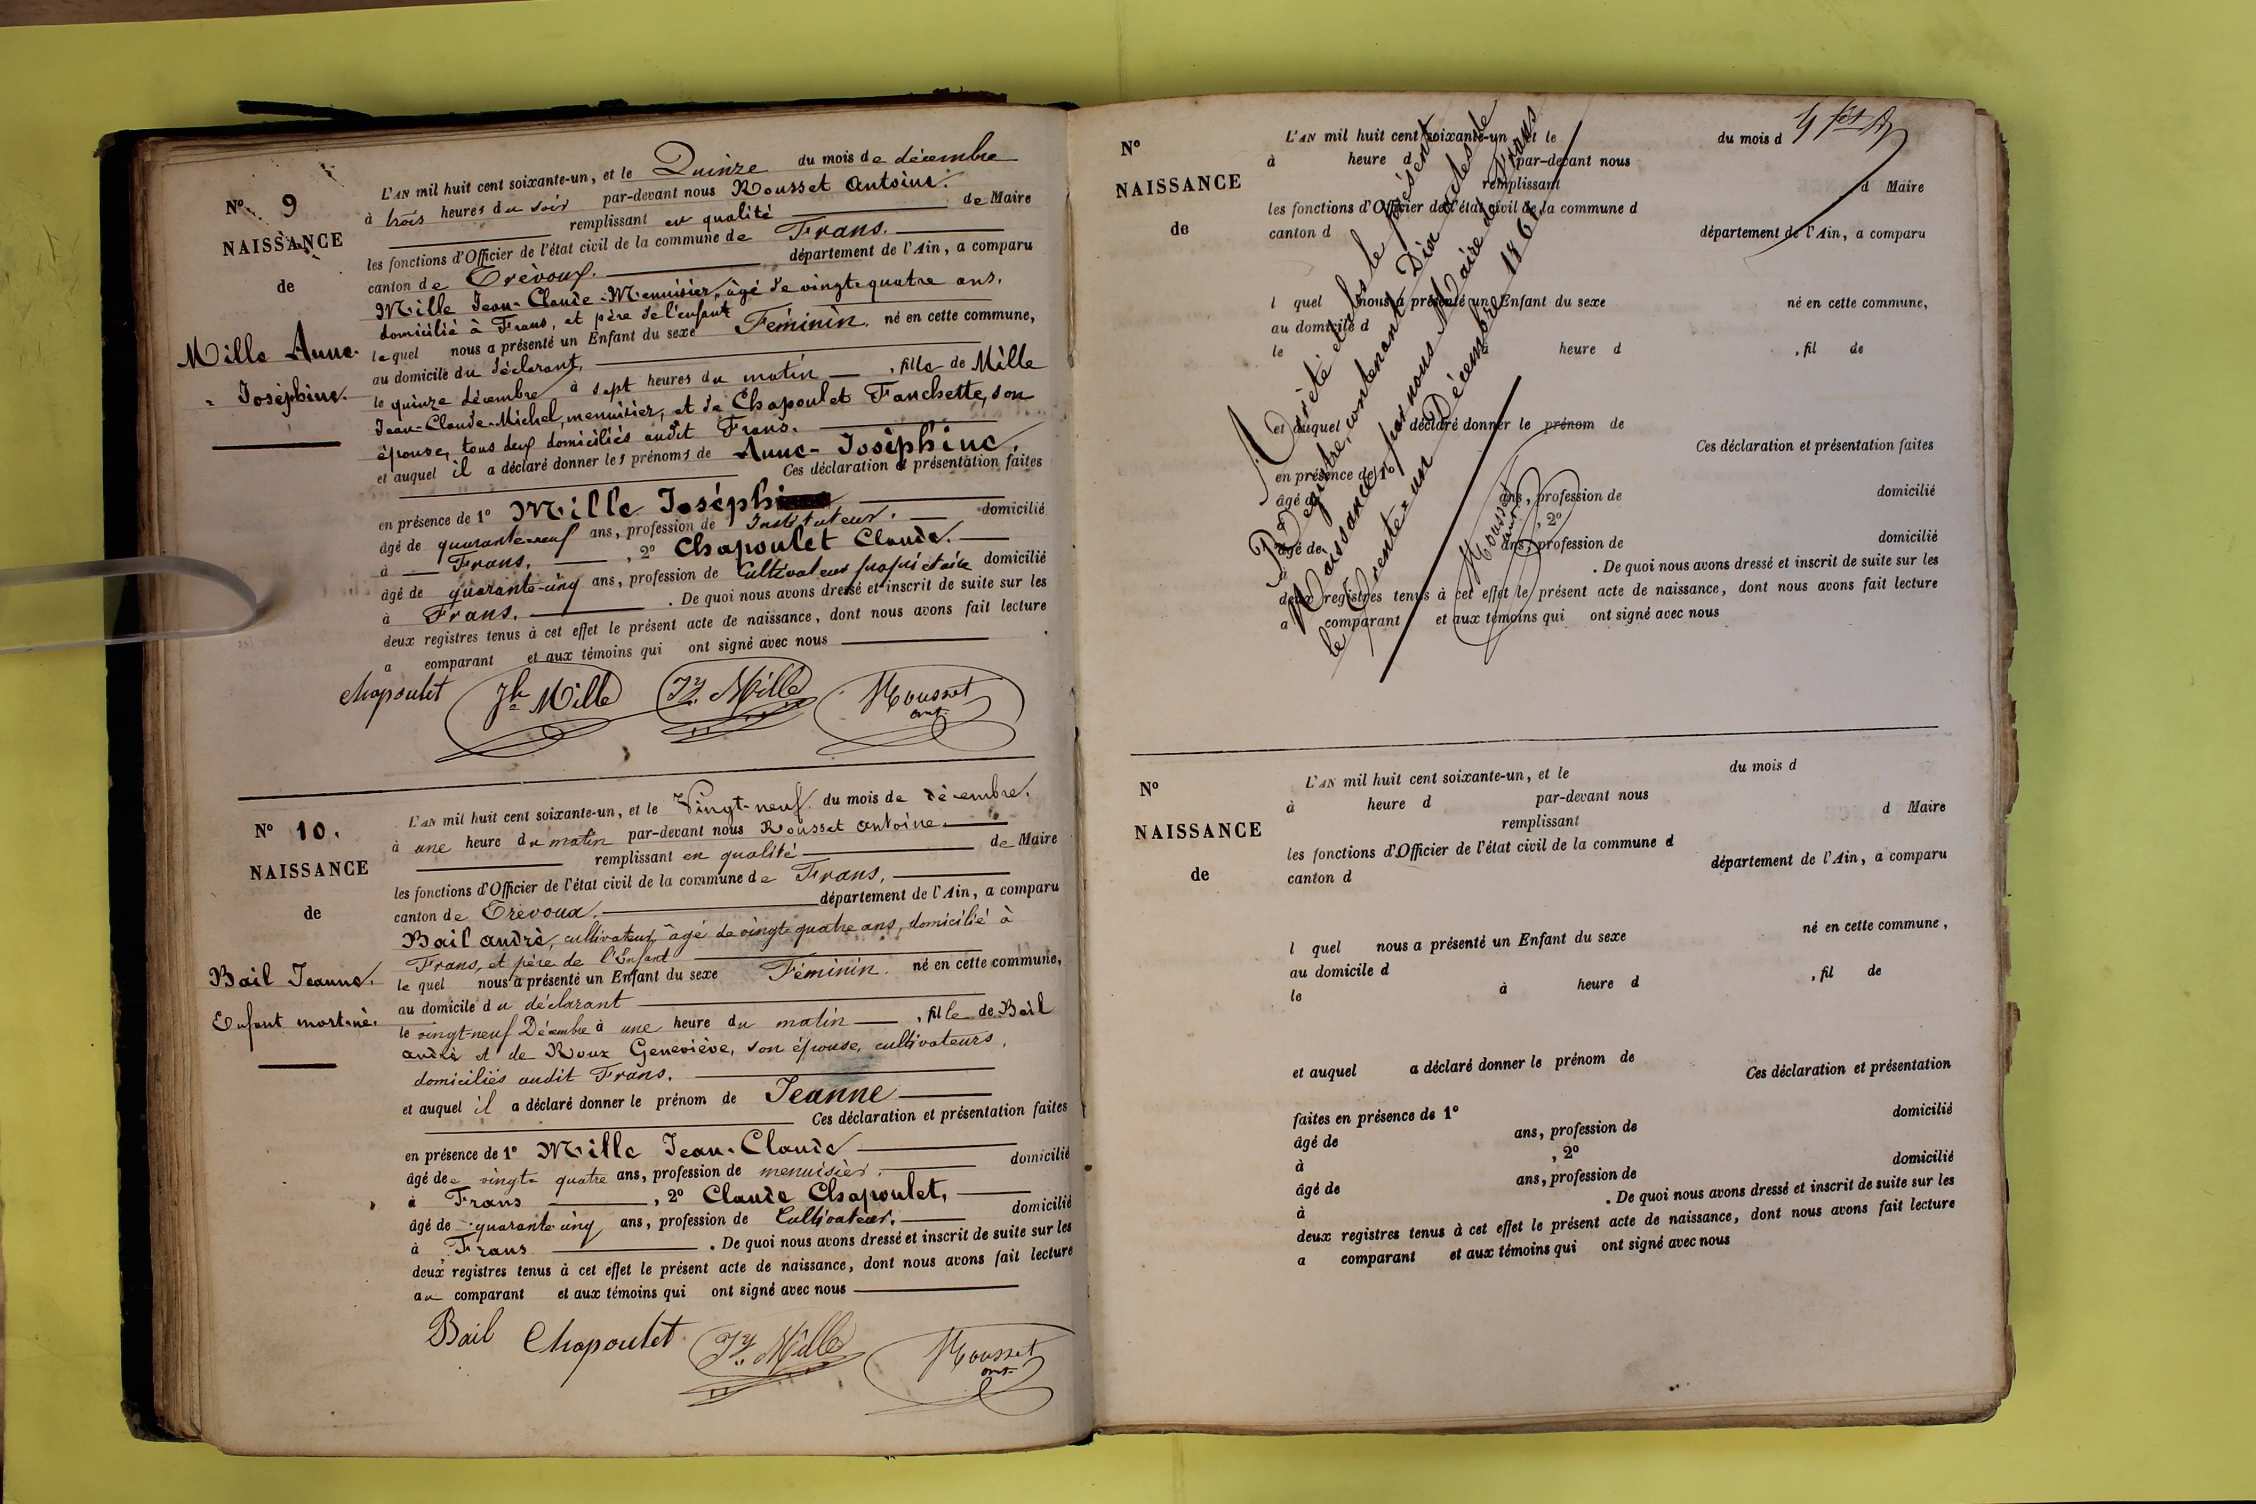 L'AN mil huit cent soixante-un, et le Quinze du mois de décembre
à trois heures du soir par-devant nous Rousset Antoine.
remplissant en qualité de Maire
les fonctions d'Officier de l'état civil de la commune de Frans.
canton de Trévoux. département de l'Ain, a comparu
Mille Jean-Claude-Menuisier, âgé de vingt-quatre ans,
domicilié à Frans, et père de l'enfant
lequel nous a présenté un Enfant du sexe Féminin, né en cette commune,
au domicile du déclarant,
le quinze décembre à sept heures du matin , fille de Mille
Jean-Claude-Michel, menuisier, et de Chapoulet Fanchette, son
épouse, tous deux domiciliés audit Frans.
et auquel il a déclaré donner les prénoms de Anne-Joséphine,
Ces déclaration et présentation faites
en présence de 1° Mille Joseph
âgé de quarante-neuf ans, profession de Instituteur. domicilié
à Frans, , 2° Chapoulet Claude.
âgé de quarante-cinq ans, profession de Cultivateur propriétaire domicilié
à Frans. . De quoi nous avons dressé et inscrit de suite sur les
deux registres tenus à cet effet le présent acte de naissance, dont nous avons fait lecture
a comparant et aux témoins qui ont signé avec nous
N° 9
NAISSANCE
de
Mille Anne-
Joséphine.
Chapoulet Jh Mille Jy Mille Rousset
ant.
N° 10.
NAISSANCE
de
Bail Jeanne.
Enfant mort-né.
L'AN mil huit cent soixante-un, et le Vingt-neuf du mois de décembre.
à une heure du matin par-devant nous Rousset Antoine.
remplissant en qualité de Maire
les fonctions d'Officier de l'état civil de la commune de Frans,
canton de Trévoux. département de l'Ain, a comparu
Bail André, cultivateur, âgé de vingt-quatre ans, domicilié à
Frans, et père de l'Enfant
le quel nous a présenté un Enfant du sexe Féminin. né en cette commune,
au domicile du déclarant
le vingt-neuf Décembre à une heure du matin , fille de Bail
André et de Roux Geneviève, son épouse, cultivateurs,
domiciliés audit Frans.
et auquel il a déclaré donner le prénom de Jeanne
Ces déclaration et présentation faites
en présence de 1° Mille Jean-Claude
âgé de vingt-quatre ans, profession de menuisier. domicilié
à Frans , 2° Claude Chapoulet,
âgé de quarante-cinq ans, profession de Cultivateur. domicilié
à Frans . De quoi nous avons dressé et inscrit de suite sur les
deux registres tenus à cet effet le présent acte de naissance, dont nous avons fait lecture
au comparant et aux témoins qui ont signé avec nous
Bail Chapoulet Jy Mille Rousset
ant.
N°
NAISSANCE
de
L'AN mil huit cent soixante-un, et le du mois d
à heure d par-devant nous
remplissant d Maire
les fonctions d'Officier de l'état civil de la commune d
canton d département de l'Ain, a comparu
l quel nous a présenté un Enfant du sexe né en cette commune,
au domicile d
le à heure d , fil de
et auquel a déclaré donner le prénom de
Ces déclaration et présentation faites
en présence de 1°
âgé de ans, profession de domicilié
à , 2°
âgé de ans, profession de domicilié
. De quoi nous avons dressé et inscrit de suite sur les
deux registres tenus à cet effet le présent acte de naissance, dont nous avons fait lecture
a comparant et aux témoins qui ont signé avec nous
Arrêté et clos le présent
Registre, contenant Dix actes de
Naissance, par nous Maire de Frans
le Trente-un Décembre 1861
Rousset
ant.
N°
NAISSANCE
de
L'AN mil huit cent soixante-un, et le du mois d
à heure d par-devant nous
remplissant d Maire
les fonctions d'Officier de l'état civil de la commune d
canton d département de l'Ain, a comparu
l quel nous a présenté un Enfant du sexe né en cette commune,
au domicile d
le à heure d , fil de
et auquel a déclaré donner le prénom de
Ces déclaration et présentation
faites en présence de 1° domicilié
âgé de ans, profession de
à , 2°
âgé de ans, profession de domicilié
à . De quoi nous avons dressé et inscrit de suite sur les
deux registres tenus à cet effet le présent acte de naissance, dont nous avons fait lecture
a comparant et aux témoins qui ont signé avec nous